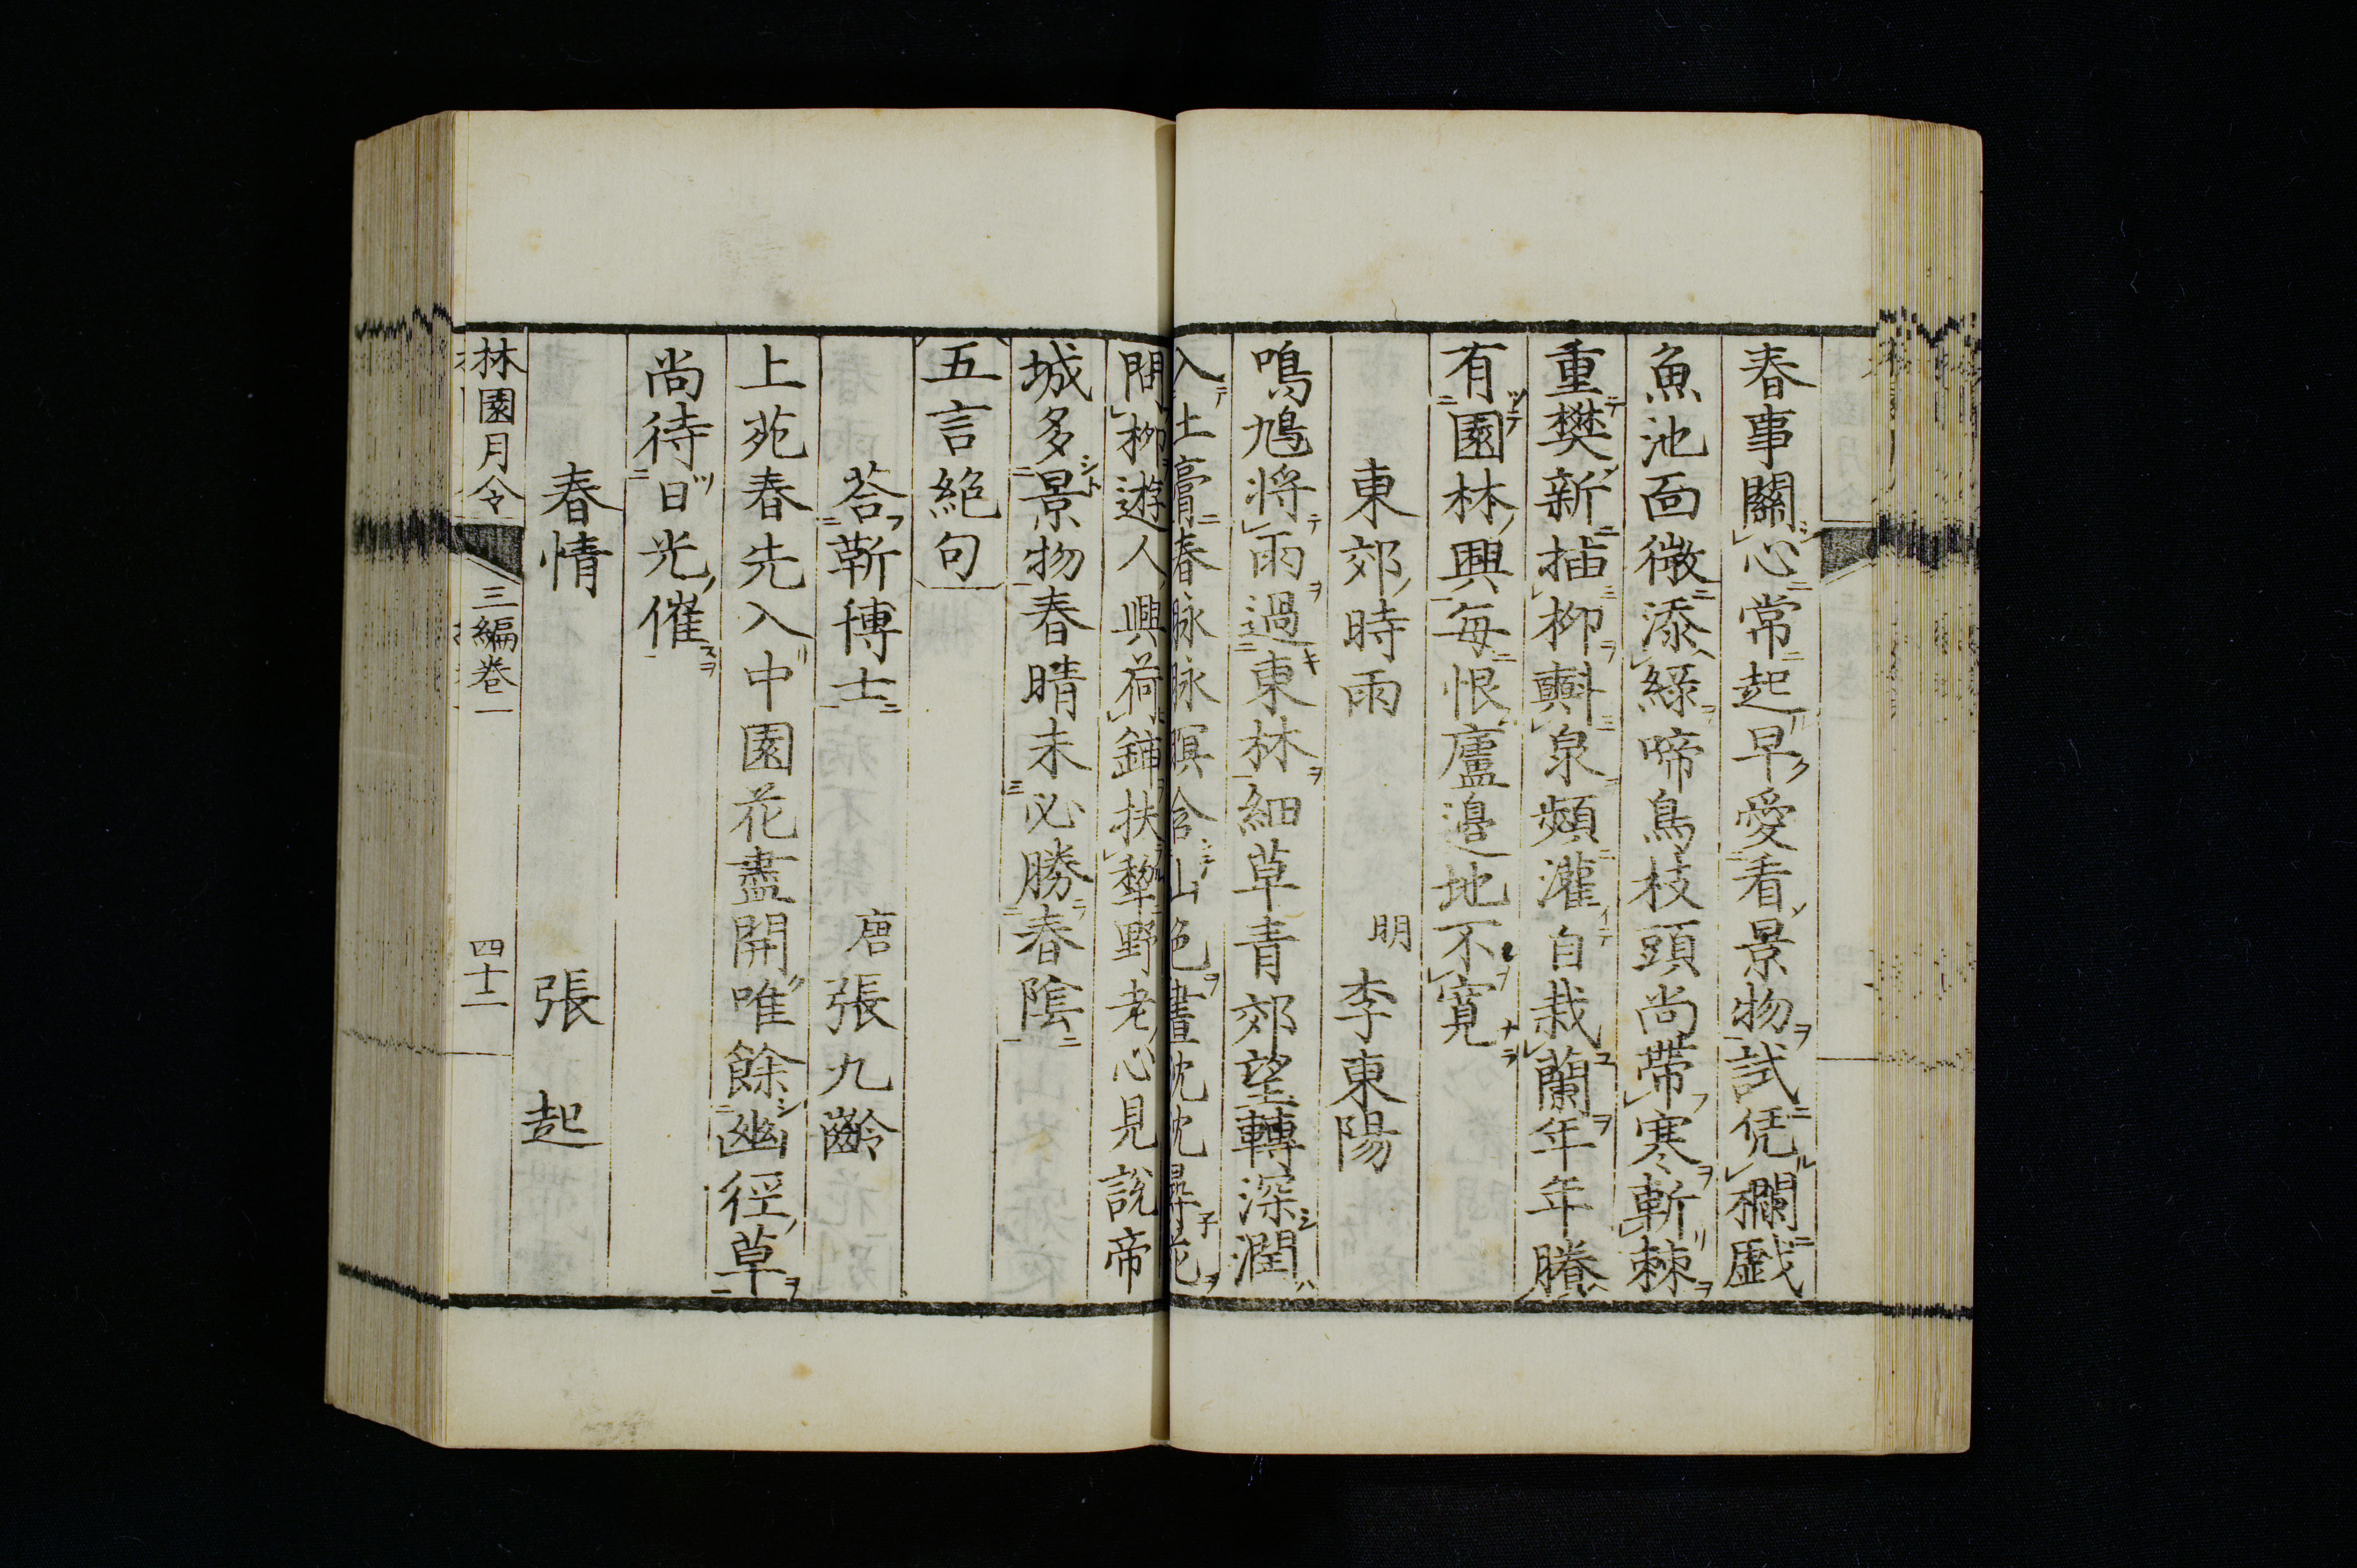 春事關心常起早愛看景物試凭欄戯
魚池面微添綠啼鳥枝頭尚帶寒斬棘
重樊新插柳㪺泉頻灌自栽蘭年年賸
有園林興每恨廬邉地不寛
東郊時雨 明 李東陽
鳴鳩將雨過東林細草青郊望轉深潤
入土膏春脉脉暝含山色晝沈沈尋花
問柳遊人興荷鍤扶犂野老心見說帝
城多景物春晴未必勝春陰
五言絕句
荅靳博士 唐 張九齡
上苑春先入中園花盡開唯餘幽徑草
尚待日光催
春情 張起
林園月令 三編卷一 四十二